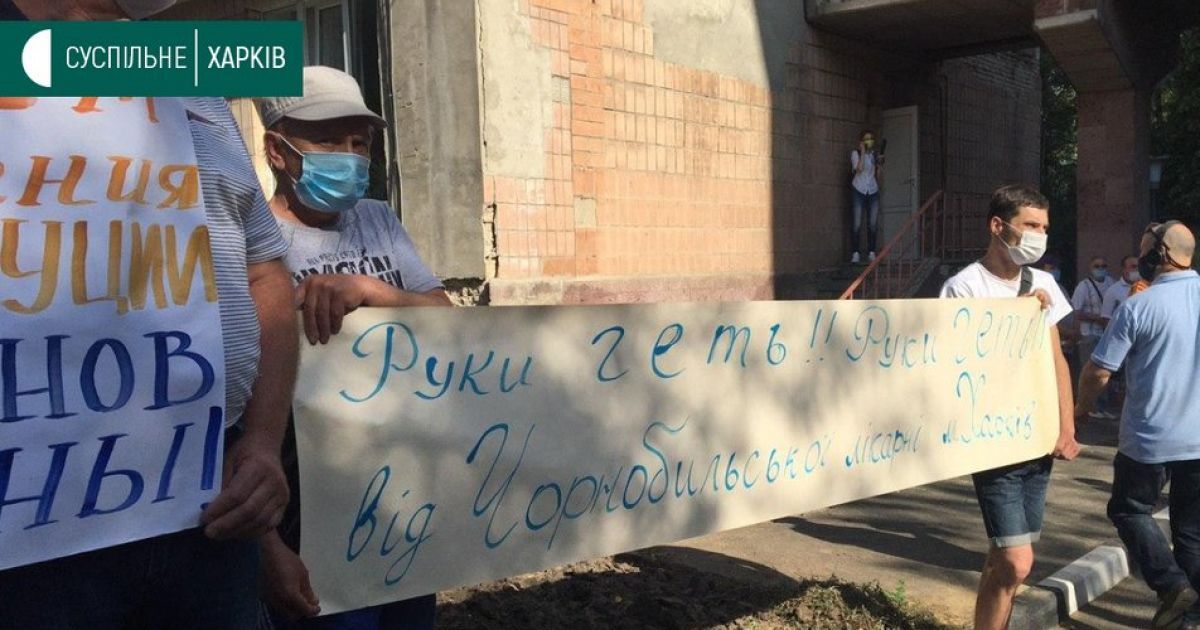 СУСПІЛЬНЕ ХАРКІВ
ения
УЦИИ
НОВ
НЫ!
Руки геть!! Руки геть!!
від Чорнобильської лікарні м. Харків